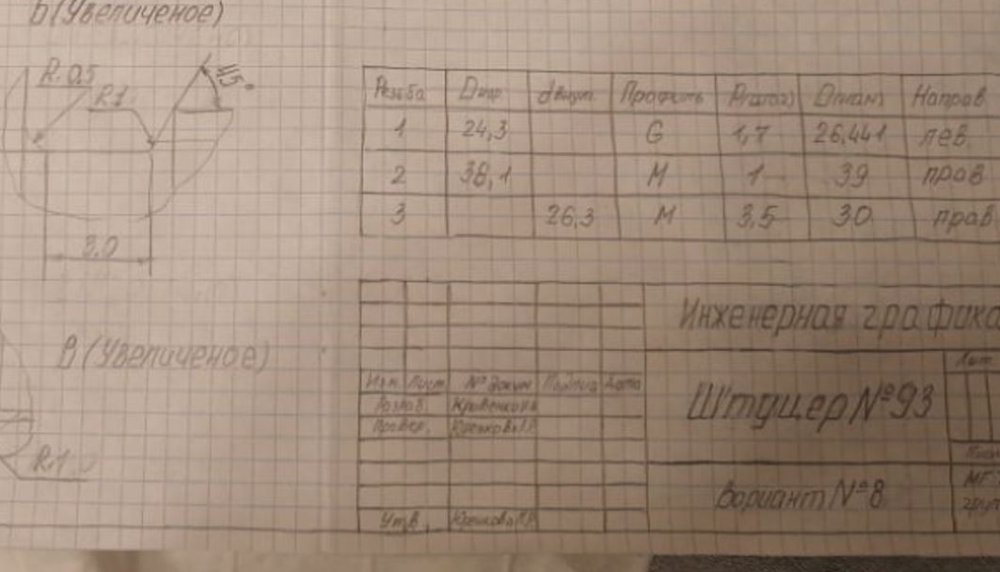 б (Увеличеное)
R. 0,5
R1
45°
3.0
Резьба Dнар dвнут Профиль P(шаг) D(ном) Направ
1 24,3 G 1,7 26,441 лев.
2 38,1 М 1 39 прав
3 26,3 М 3,5 30 прав
В (Увеличеное)
R.1
Инженерная графика
Изм. Лист № докум Подпись Дата
Разраб.
Провер.
Штуцер №93
Лит.
Вариант №8
МГ
груп
Утв.